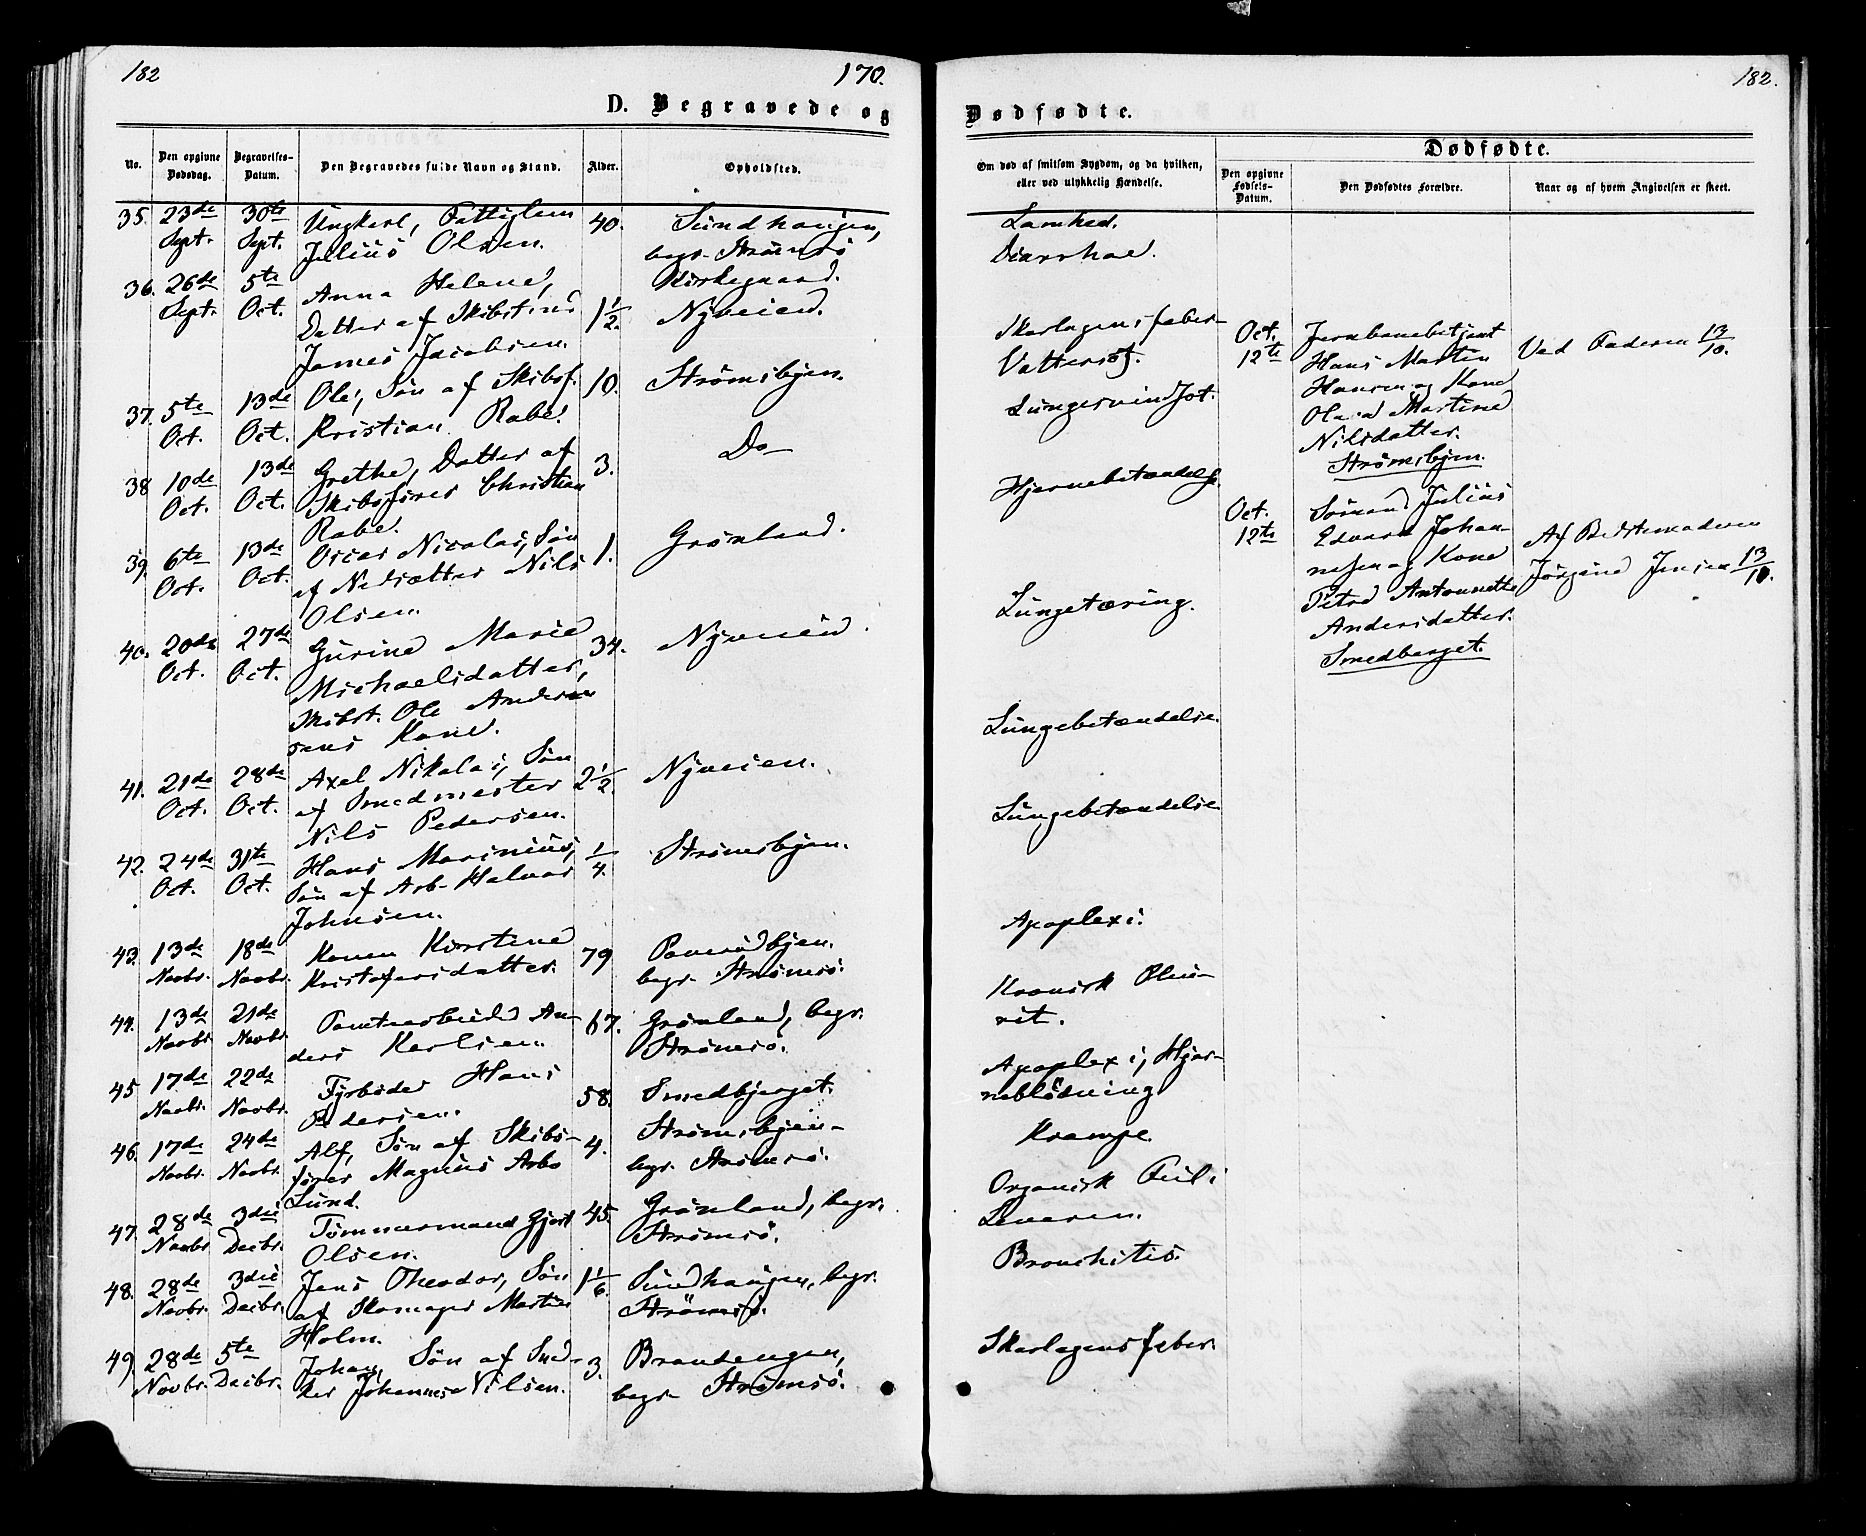 182
170.
D. Begravede og
No.
Den opgivne Dødsdag.
Begravelses-Datum.
Den Begravedes fulde Navn og Stand.
Alder.
Opholdsted.
35. 23de Sept. 30te Sept. Ungkarl, Fattiglem 40. Sundhaugen,
Julius Olsen. begr. Strømsø
Kirkegaard.
36. 26de Sept. 5te Oct. Anna Helene,
Datter af Skibstmd 1 1/2. Nyveien.
James Jacobsen.
37. 5te Oct. 13de Oct. Ole, Søn af Skibsf. 10. Strømsbyen.
Kristian Rabe.
38 10de Oct. 13de Oct. Grethe, Datter af 3. Do
Skibsfører Christian
Rabe.
39. 6te Oct. 13de Oct. Oscar Nicolai, Søn 1. Grønland.
af Nedsætter Nils
Olsen.
40. 20de Oct. 27de Oct. Gurine Marie 34. Nyveien.
Michaelsdatter,
Skibst. Ole Ander
sens Kone.
41. 21de Oct. 28de Oct. Axel Nikolai, Søn 2 1/2. Nyveien.
af Smedmester
Nils Pedersen.
42. 24de Oct. 31te Oct. Hans Marinius, 1/4. Strømsbyen.
Søn af Arb. Halvor
Johnsen.
43. 13de Novbr. 18de Novbr. Konen Kirstine 79
Kristofersdatter. begr. Strømsø.
44. 13de Novbr. 21de Novbr. An- 67. Grønland, begr.
ders Karlsen. Strømsø.
45 17de Novbr. 22de Novbr. Fyrbøder Hans 58. Smedbjerget.
Pedersen.
46. 17de Novbr. 24de Novbr. Alf, Søn af Skibs- 4. Strømsbyen-
fører Magnus Arbo begr. Strømsø.
Lund.
47. 28de Novbr. 3die Decbr. Tømmermand Gjert 45. Grønland, begr.
Olsen. Strømsø.
48. 28de Novbr. 3die Decbr. Jens Theodor, Søn 1 1/6. Sundhaugen, begr.
af Skomager Martin Strømsø.
Holm.
49. 28de Novbr. 5te Decbr. Johan, Søn af Sned- 3. Brandengen,
ker Johannes Nilsen. begr. Strømsø.
182.
Dødfødte.
Om død af smitsom Sygdom, og da hvilken,
eller ved ulykkelig Hændelse.
Dødfødte.
Den opgivne Fødsels-Datum.
Den Dødfødtes Forældre.
Naar og af hvem Angivelsen er skeet.
Lamhed.
Diarrhoe.
Skarlagensfeber-
Vattersot.
Lungesvindsot.
Hjernebetændelse.
Lungetæring.
Lungebetændelse.
Lungebetændelse
Apoplexi.
Kronisk Pleu-
rit.
Apoplexi, Hjer-
neblødning
Krampe.
Organisk Feil i
Leveren.
Bronchitis.
Skarlagensfeber.
Oct. 12te Jernbanebetjent
Hans Martin Ved Faderen 13/10.
Hansen og Kone
Olava Martine
Nilsdatter.
Strømsbyen.
Oct. 12te Sømand Julius
Edvard Johan- Af Bedstemoderen
nesen og Kone Jørgine Jensen 13/10.
Petra Antonnette
Andersdatter.
Smedberget.